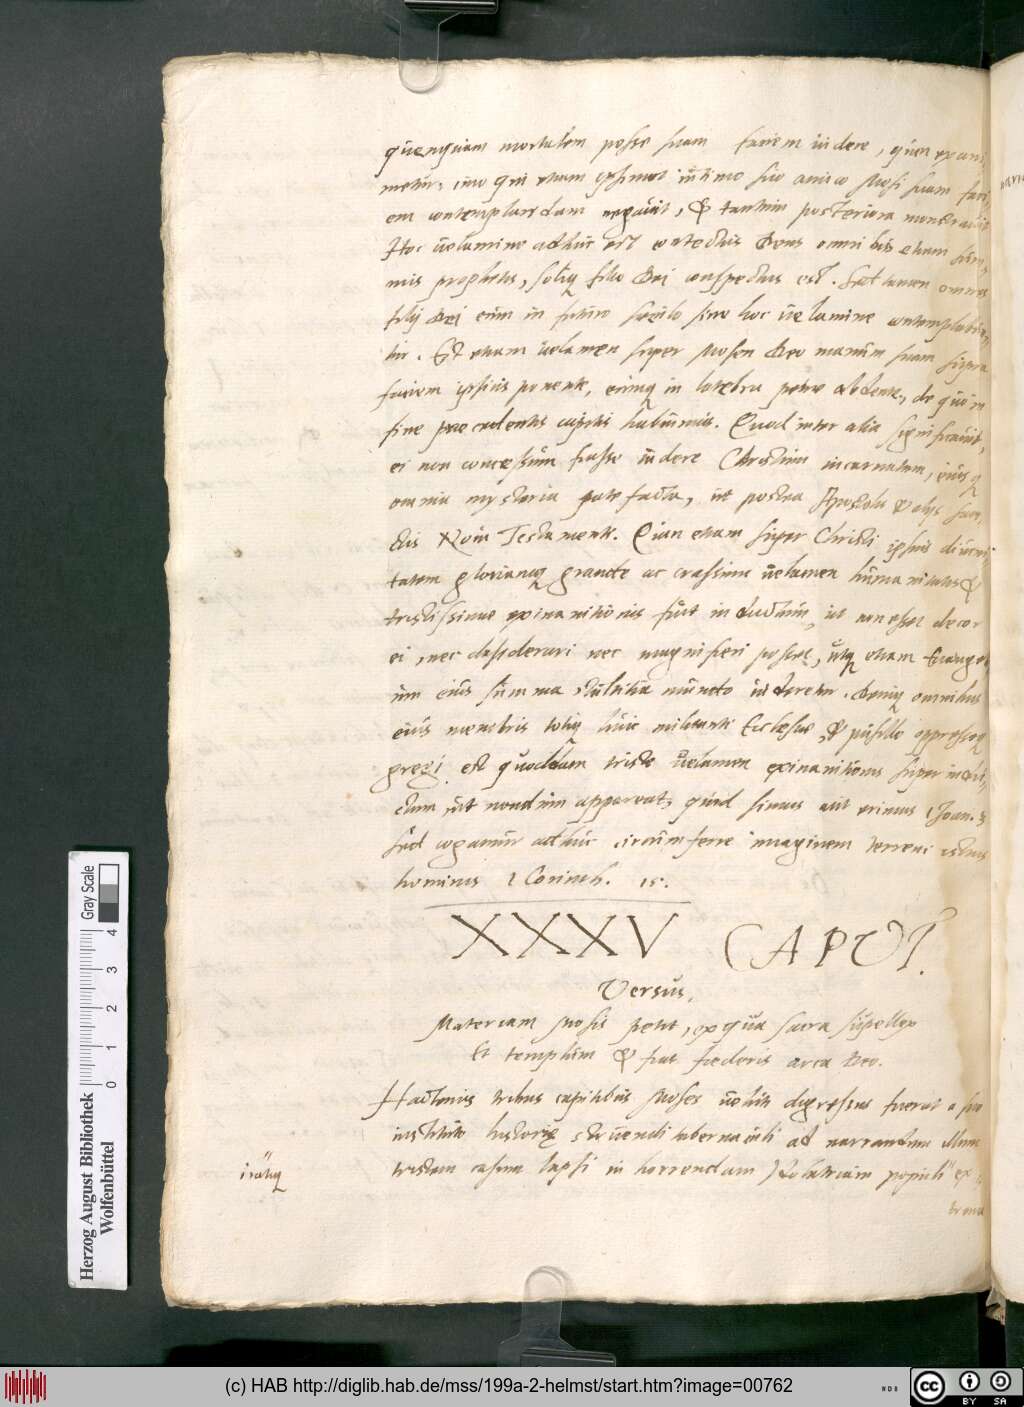 quenquam mortalem posse suam faciem videre, quin exani,
metur, imo qui etiam ipsimet intimo suo amico Mosi suam faci,
em contemplandam negavit, & tantum posteriora monstravit
Hoc velamine adhuc est contectus Deus omnibus etiam sum,
mis prophetis, soliq filio Dei conspectus est. Sed tamen omnes
filij Dei eum in futuro saeculo sine hoc velamine contemplabun
tur. Est etiam velamen super Mosen Deo manum suam supra
faciem ipsius ponente, eumq in latebra petrae abdente, de quo in
fine praecedentis capitis habuimus. Quod inter alia significavit,
ei non concessum fuisse videre Christum incarnatum, eiusq
omnia mysteria patefacta, ut postea Apostolis & alijs san,
ctis Novi Testamenti. Quin etiam super Christi ipsius divini,
tatem gloriamq grande ac crassum velamen humanitatis &
tristissimae exinanitionis fuit inductum, ut non esset decor
ei, nec desiderari nec magnifieri posset, utq etiam Evangeli
um eius summa stultitia mundo videretur. Deniq omnibus
eius membris totiq huic militanti Ecclesiae, & pusillo oppressoq
gregi est quoddam triste velamen exinanitionis superindu,
ctum, ut nondum appareat, quid simus aut erimus 1 Joan. 3
Sed cogamur adhuc circumferre imaginem terreni istius
hominis 1 Corinth. 15.
XXXV CAPUT.
Versus.
Materiam Mosis petit, ex qua sacra supellex
Et templum & fiat foederis arca Deo.
Hactenus tribus capitibus Moses velut digressus fuerat a suo
instituto historię struendi tabernaculi ad narrandum illum
tristem casum lapsi in horrendam Idolatriam populi" ex,
trema
" iratiq
Herzog August Bibliothek
Wolfenbüttel
0 1 2 3 4
Gray Scale
(c) HAB http://diglib.hab.de/mss/199a-2-helmst/start.htm?image=00762
cc BY SA